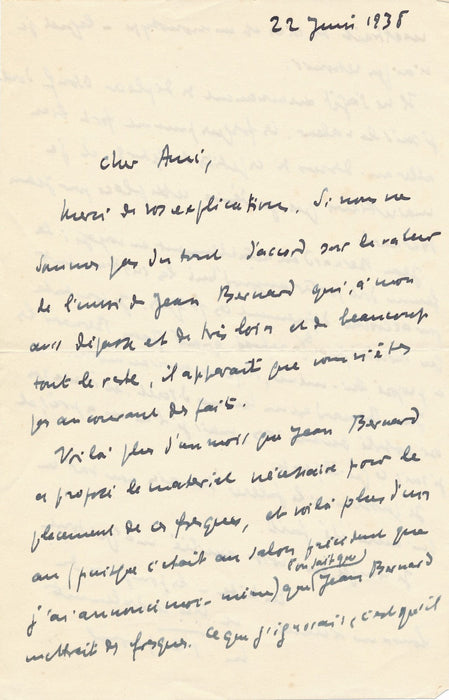 22 Juin 1938
Cher Ami,
Merci de vos explications. Si nous ne
sommes pas du tout d'accord sur la valeur
de l'envoi de Jean Bernard qui, à mon
avis dépasse et de très loin et de beaucoup
tout le reste, il apparaît que vous n'êtes
pas au courant des faits.
Voilà plus d'un mois que Jean Bernard
a proposé le matériel nécessaire pour le
placement de ces fresques, et voilà plus d'un
an (puisque c'était au salon précédent que
j'ai annoncé moi-même) que (l'on sait que) Jean Bernard
mettrait des fresques. Ce que j'ignorais, c'est qu'il